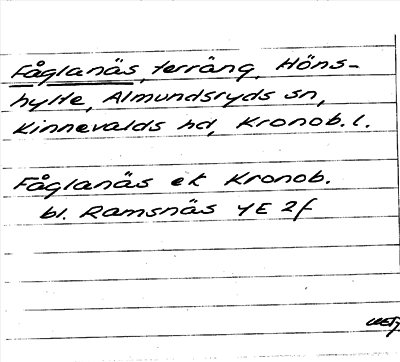 Fåglanäs, terräng, Höns-
hylte, Almundsryds sn,
Kinnevalds hd, Kronob. l.
Fåglanäs ek Kronob.
bl. Ramsnäs 4E 2f